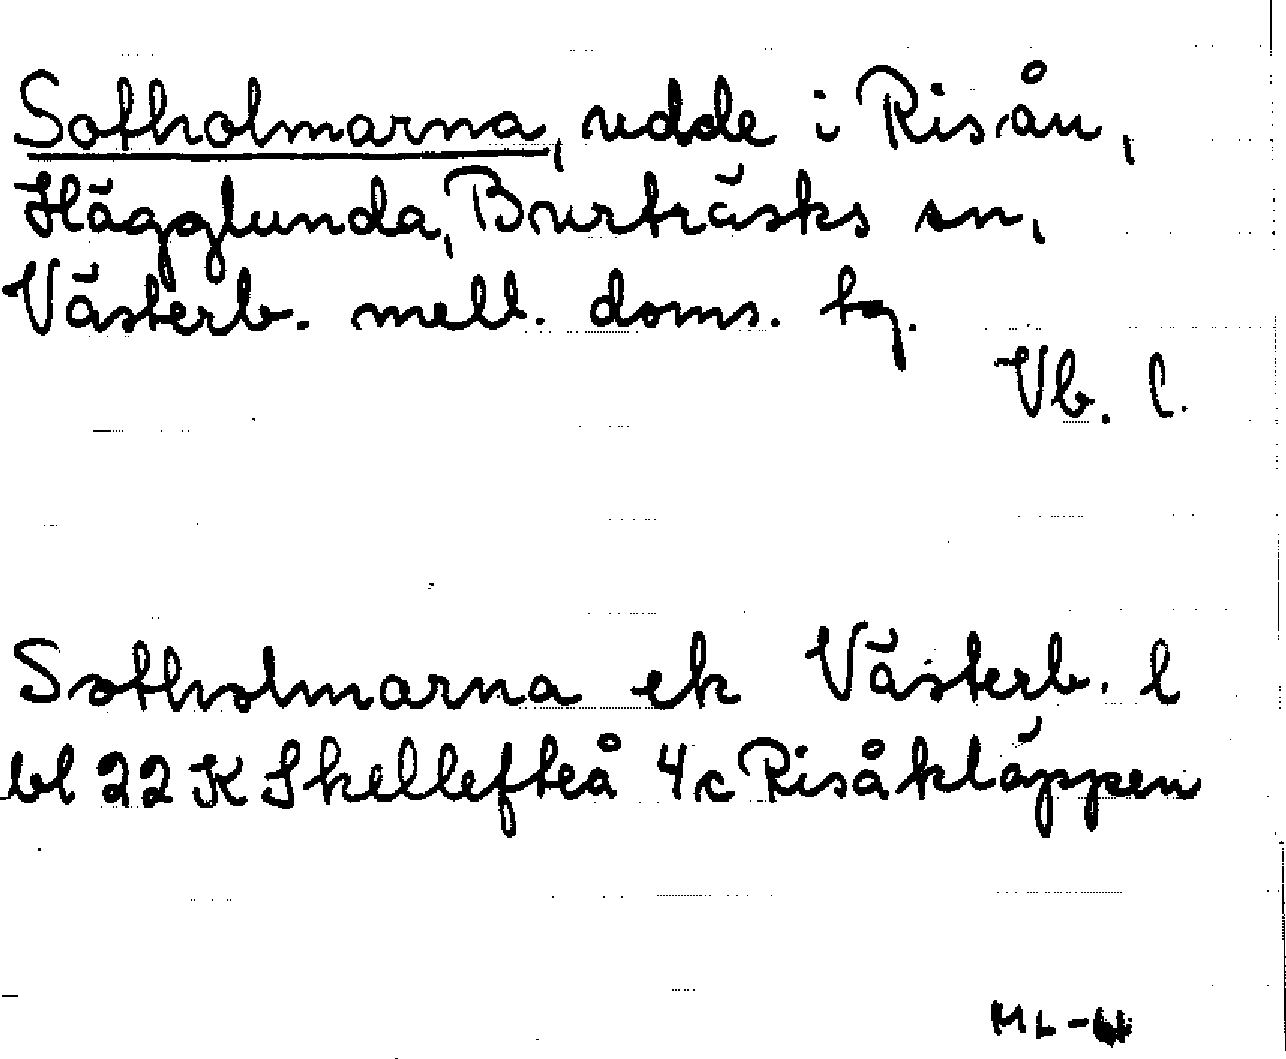 Sotholmarna, udde i Risån,
Hägglunda, Burträsks sn,
Västerb. mell. doms. tg.
Vb. l.
Sotholmarna ek Västerb. l
bl 22 K Skellefteå 4c Risåkläppen